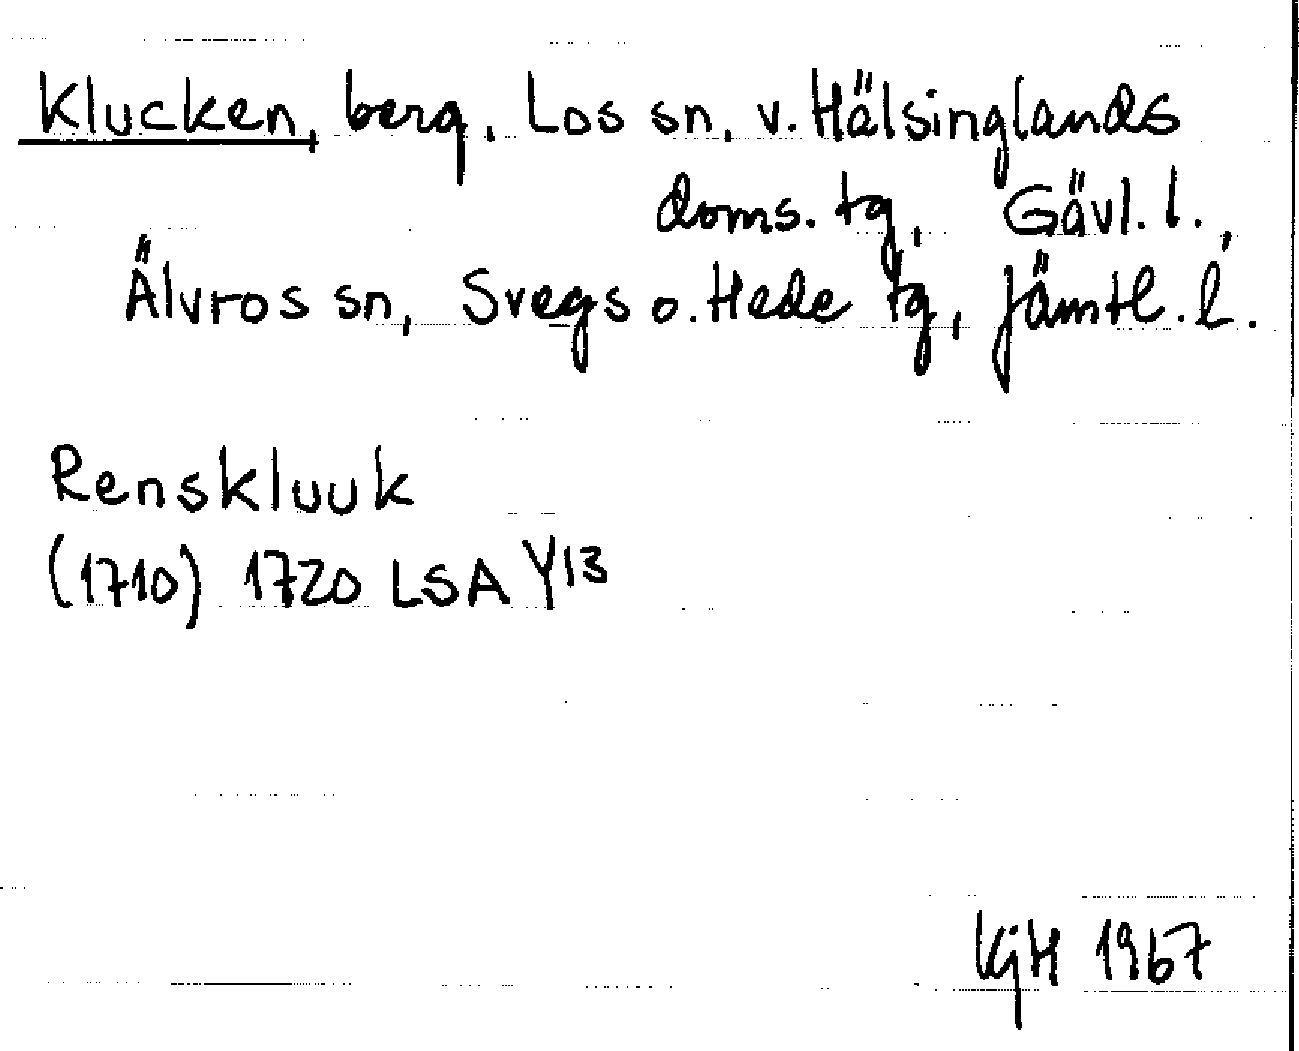 Klucken, berg, Los sn, v. Hälsinglands
doms. tg, Gävl. l.,
Älvros sn, Svegs o. Hede tg, Jämtl. l.
Renskluuk
(1710) 1720 LSA Y13
KjH 1967